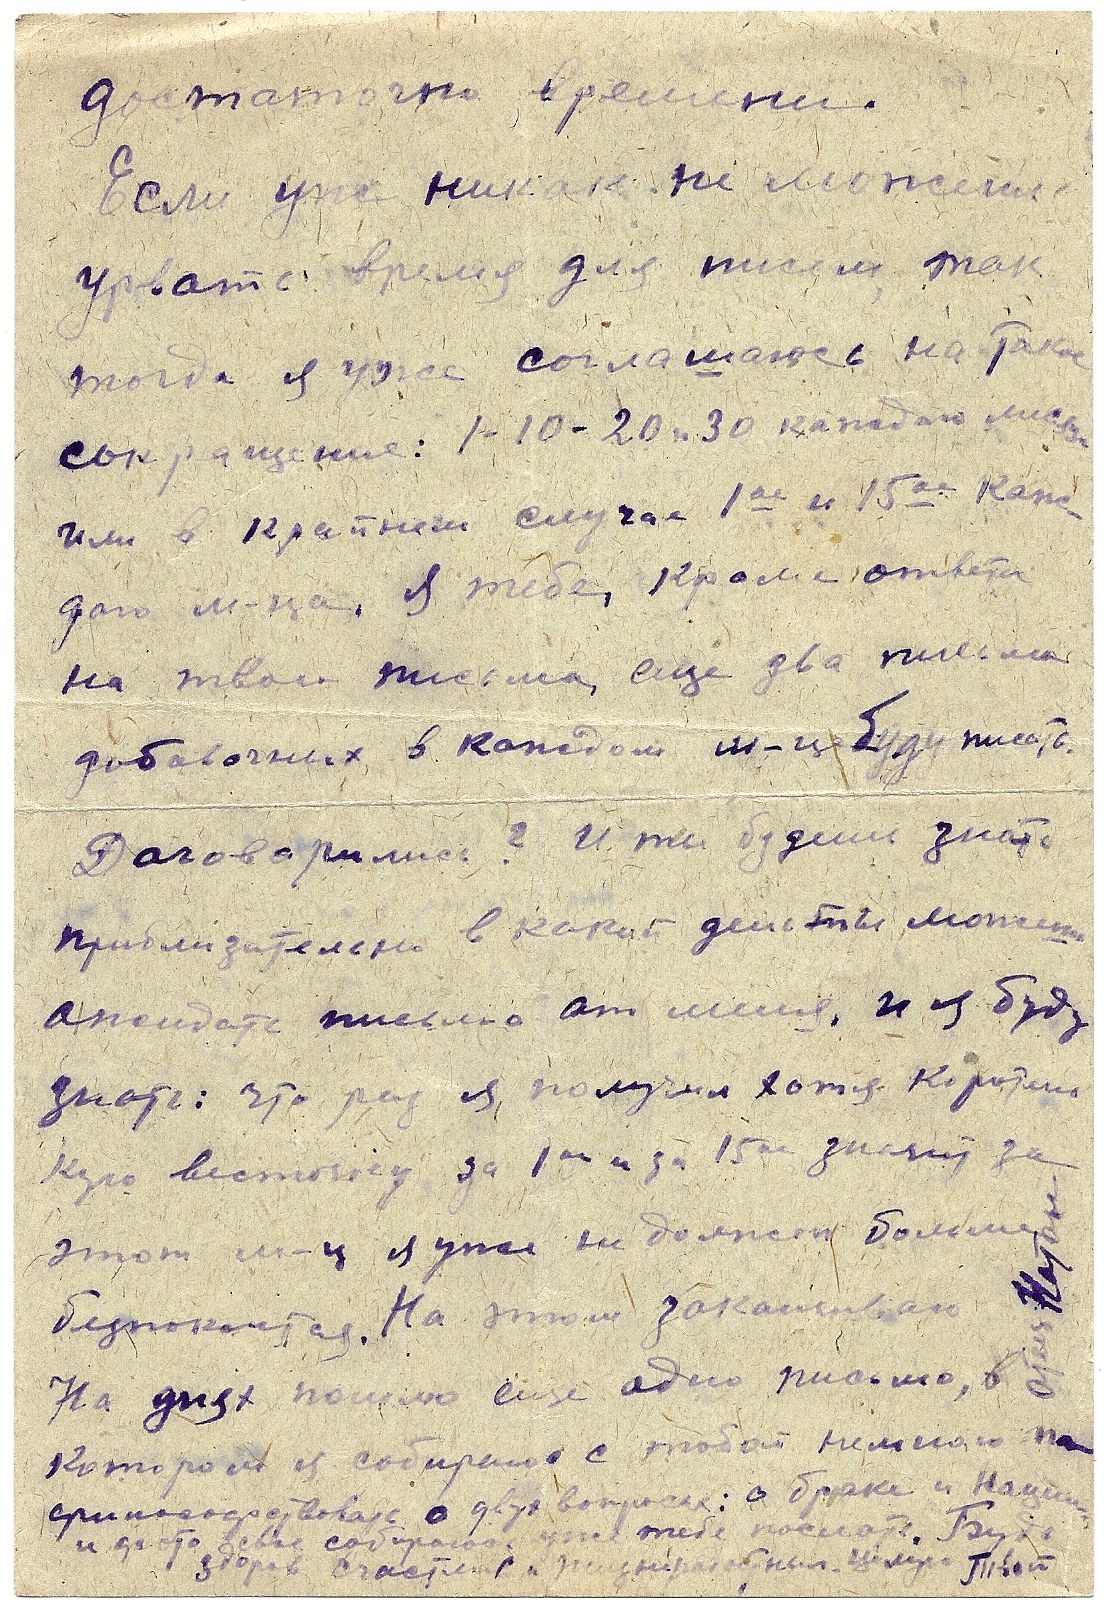 достаточно времени.
Если уже никак не можешь
урвать время для писем, так
тогда я уже соглашаюсь на такое
сокращение: 1-10-20 и 30 каждого месяца
или в крайнем случае 1ое и 15ое каж-
дого м-ца. Я тебе, кроме ответа
на твои письма, еще два письма
добавочных в каждом м-це буду писать.
Договорились? И ты будешь знать
приблизительно в какой день ты можешь
ожидать письмо от меня, и я буду
знать: что раз я получил хотя коротень
кую весточку за 1ое и за 15ое значит за
этот м-ц я уже не должен больше
безпокоится. На этом заканчиваю
На днях пошлю еще одно письмо, в
котором я собираюсь с тобой немного по
философствовать о двух вопросах: о браке и нации
и собираюсь уже тебе послать. Будь
здоров счастлив и жизнерадостный. Целую Твой
отец Натан